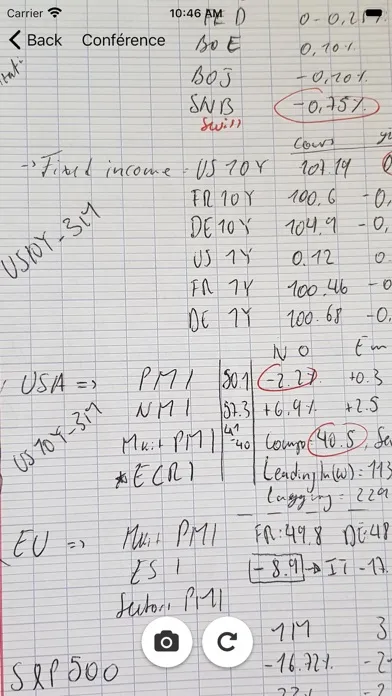 Carrier 10:46 AM
Back Conférence
FED 0-0,25%
BOE 0,10%
BOJ -0,10%
SNB -0,75%
Swiss
Cours
-> Fixed income - US 10Y 107.19
FR 10Y 100.6 -0,
DE 10Y 104,9 -0,
US10Y_3M
US 1Y 0.12 0.
FR 1Y 100.46 -0
DE 1Y 100.68 -0.
NO Em
USA => PMI 50.1 -2.2% +0.3
NMI 57.3 +6,4% +2.5
US10Y-3M
Mkit PMI Compo 40.5, Se
*ECRI Leading In(w): 113
Lagging = 229
EU => Mkit PMI FR: 49.8 DE: 48
ESI -8.9 -> IT -17.
Sectors PMI
1M 3
S&P500 -16.72% -2